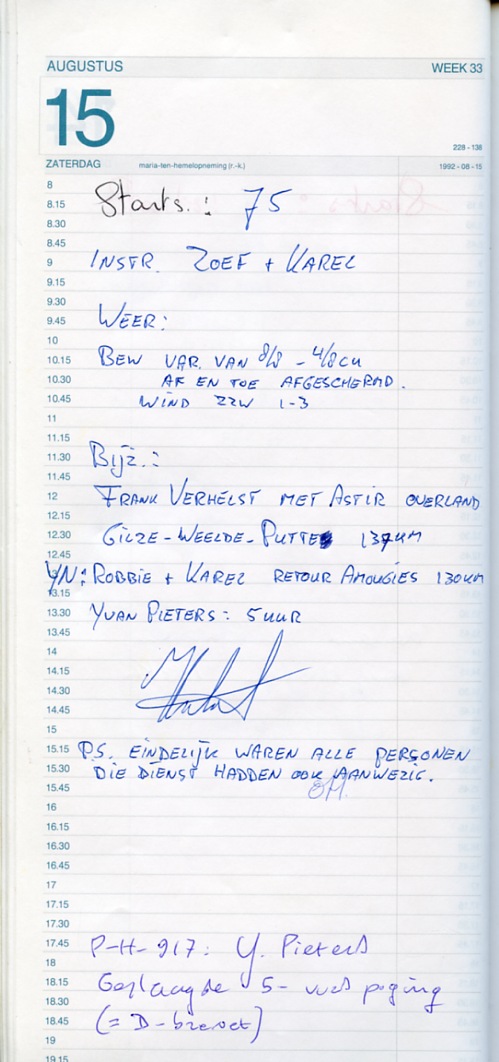 AUGUSTUS WEEK 33
15
228 - 138
ZATERDAG maria-ten-hemelopneming (r.-k.) 1992 - 08 - 15
8
8.15 Starts.: 75
8.30
8.45
9 INSTR. ZOEF + KAREL
9.15
9.30
9.45 WEER:
10
10.15 BEW VAR. VAN 8/8 - 4/8 CU
10.30 AF EN TOE AFGESCHERMD.
10.45 WIND ZZW 1-3
11
11.15
11.30 Bijz.:
11.45
12 FRANK VERHELST MET ASTIR OVERLAND
12.15
12.30 GILZE-WEELDE-PUTTE 137KM
12.45
YN: ROBBIE + KAREL RETOUR AMOUGIES 130KM
13.15
13.30 YVAN PIETERS: 5 UUR
13.45
14
14.15
14.30
14.45
15
15.15 P.S. EINDELIJK WAREN ALLE PERSONEN
15.30 DIE DIENST HADDEN OOK AANWEZIG.
15.45
16
16.15
16.30
16.45
17
17.15
17.30
17.45 P-H-917: Y. Pieters
18
18.15 Geslaagde 5- uur poging
18.30
18.45 (= D-brevet)
19
19.15